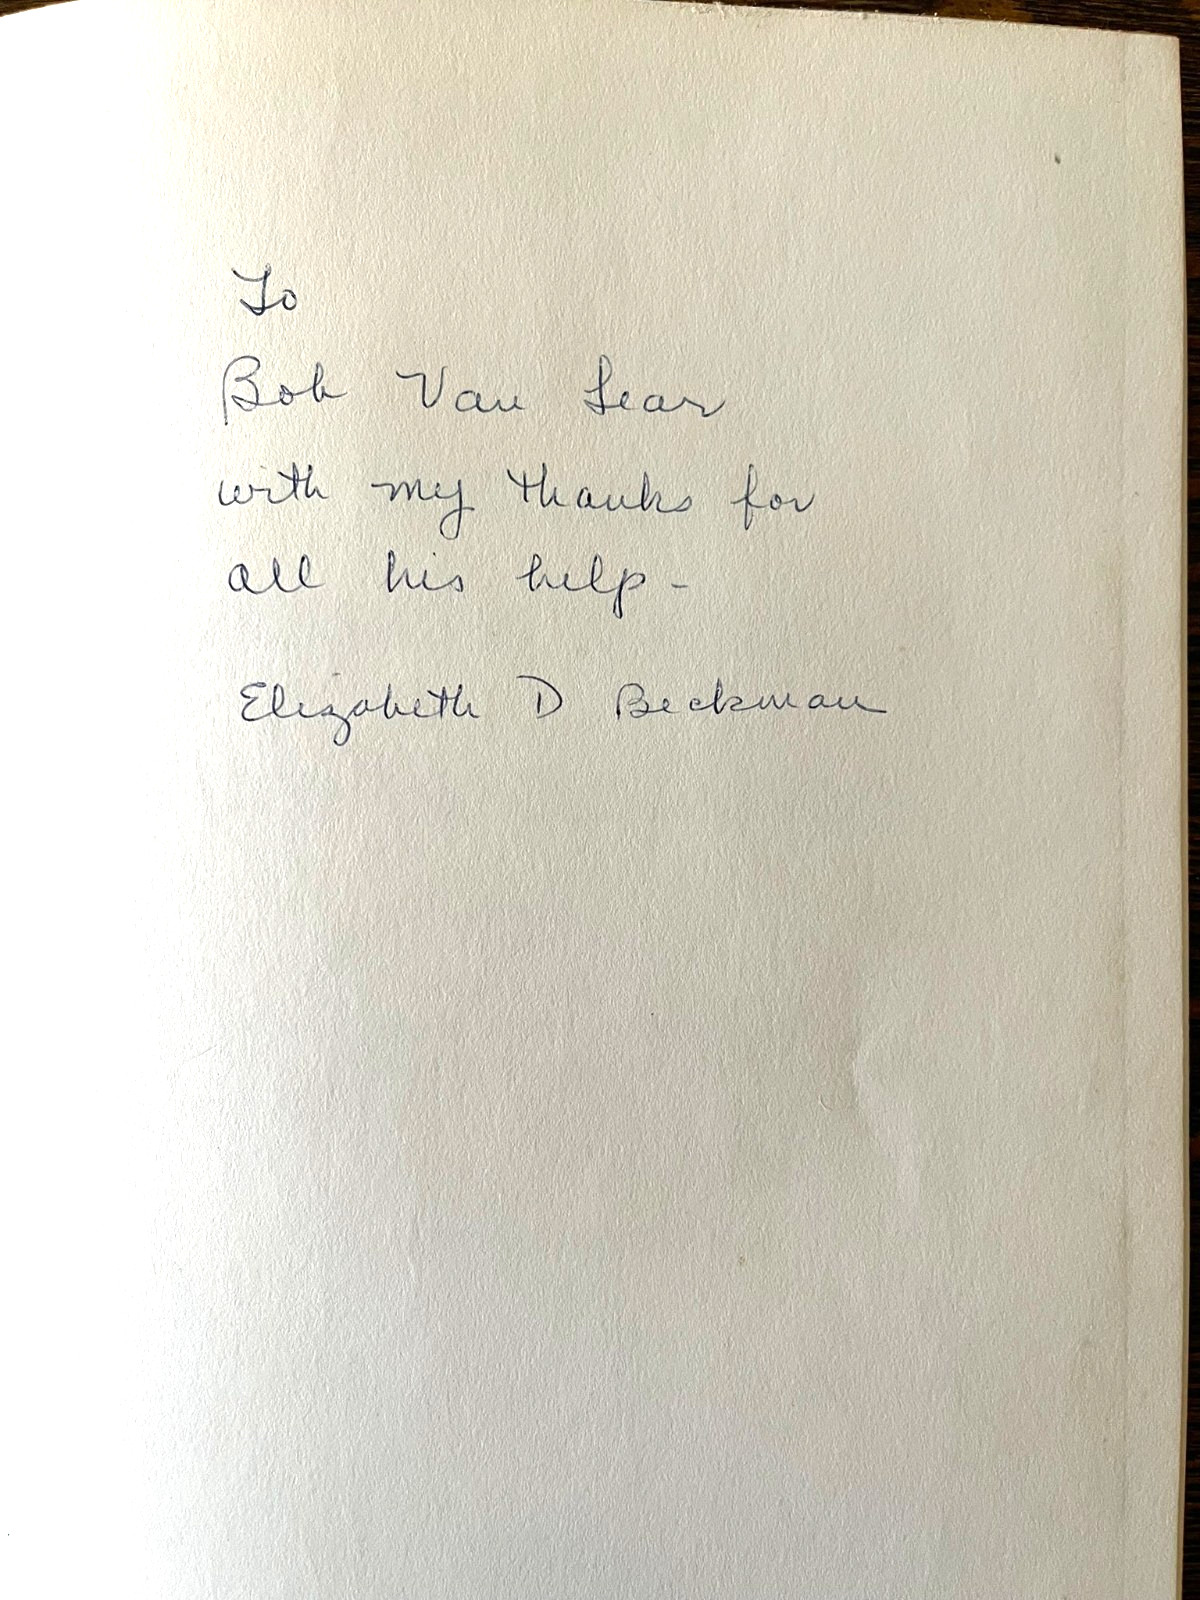 To
Bob Van Lear
with my thanks for
all his help -
Elizabeth D Beckman